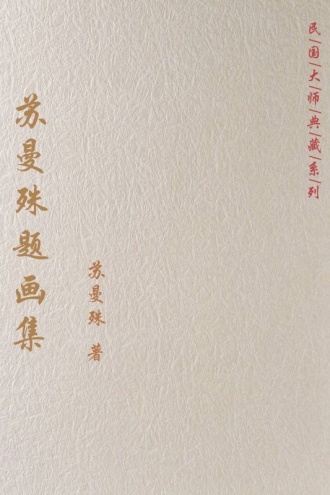 民国大师典藏系列
苏曼殊 著
苏曼殊题画集